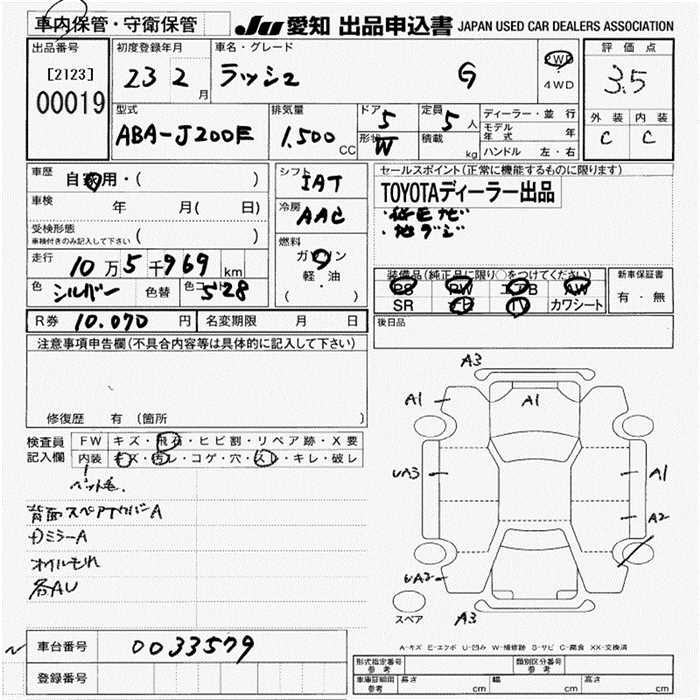 車内保管・守衛保管
JU 愛知 出品申込書 JAPAN USED CAR DEALERS ASSOCIATION
出品番号
[2123]
00019
初度登録年月
23 2 月
車名・グレード
ラッシュ G
4WD
評価点
3.5
外装 内装
C C
型式
ABA-J200E
排気量
1.500 CC
ドア 5
形状 W
定員 5 人
積載 kg
ディーラー・並行
モデル年式 年
ハンドル 左・右
車歴
自家用・( )
車検 年 月( 日)
受検形態
車検付きのみ記入して下さい ( )
走行
10万5千969km
色 シルバー 色替 色コード S28
シフト
IAT
冷房
AAC
燃料
ガソリン
軽・油
( )
セールスポイント(正常に機能するものに限ります)
TOYOTAディーラー出品
・純正ナビ
・地デジ
装備品(純正品に限り○をつけてください)
PS PW エアB AW
SR ナビ TV カワシート
新車保証書
有・無
後日品
R券 10.070 円
名変期限 月 日
注意事項申告欄(不具合内容等は具体的に記入して下さい)
修復歴 有 (箇所 )
検査員
記入欄
FW キズ・飛石・ヒビ割・リペア跡・X要
内装 キズ・汚レ・コゲ・穴・スレ・キレ・破レ
ペット毛
背面スペアTカバーA
オイルモレ
各AU
A3
A1
A1
UA3
A1
A2
UA2
A3
スペア
A-キズ E-エクボ U-凹み W-補修跡 S-サビ C-腐食 XX-交換済
車台番号 0033579
登録番号
形式指定番号 参考
類別区分番号 参考
車庫証明用 参考 長さ cm 幅 cm 高さ cm